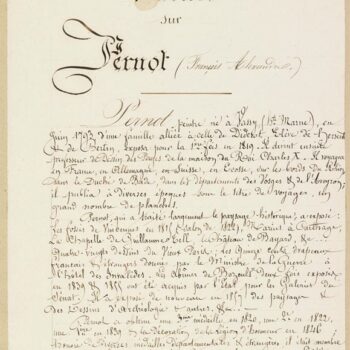 sur
Pernot (François Alexandre.)
Pernot, peintre né à Vassy (Hte Marne), en
Juin 1793 d'une famille alliée à celle de Diderot. Elève de
& de Bertin, exposa pour la 1ère fois en 1819. Il devint ensuite
professeur de Dessin des Pages de la maison du Roi Charles X. Il voyagea
en France, en Allemagne, en Suisse, en Ecosse, sur les bords du Rhin,
dans le Duché de Bade, dans les départements des Vosges & de l'Aveyron;
il publia à diverses époques sous le titre de voyages, un
grand nombre de planches.
Pernot, qui a traité largement le paysage historique, a exposé:
de (Salon de 1822) Marius à Carthage,
La Chapelle de Guillaume Tell, le Château de Bayard, &a
Quatre vingts dessins du Vieux Paris,
français & étrangers donnés par le Ministre de la Guerre à
l'Hôtel des Invalides. deux fois exposés
en 1839 & 1855 ont été acquis par l'Etat pour la Galerie du
Sénat. Il a exposé de nouveau en 1857 des paysages &
des Dessins d'Archéologie & autres. &a.
Pernot a obtenu une 3me médaille, en 1820, une 2e en 1822,
une 1ère en 1839 & la décoration de la Légion d'honneur en 1846;
médailles départementales & étrangères il était membre